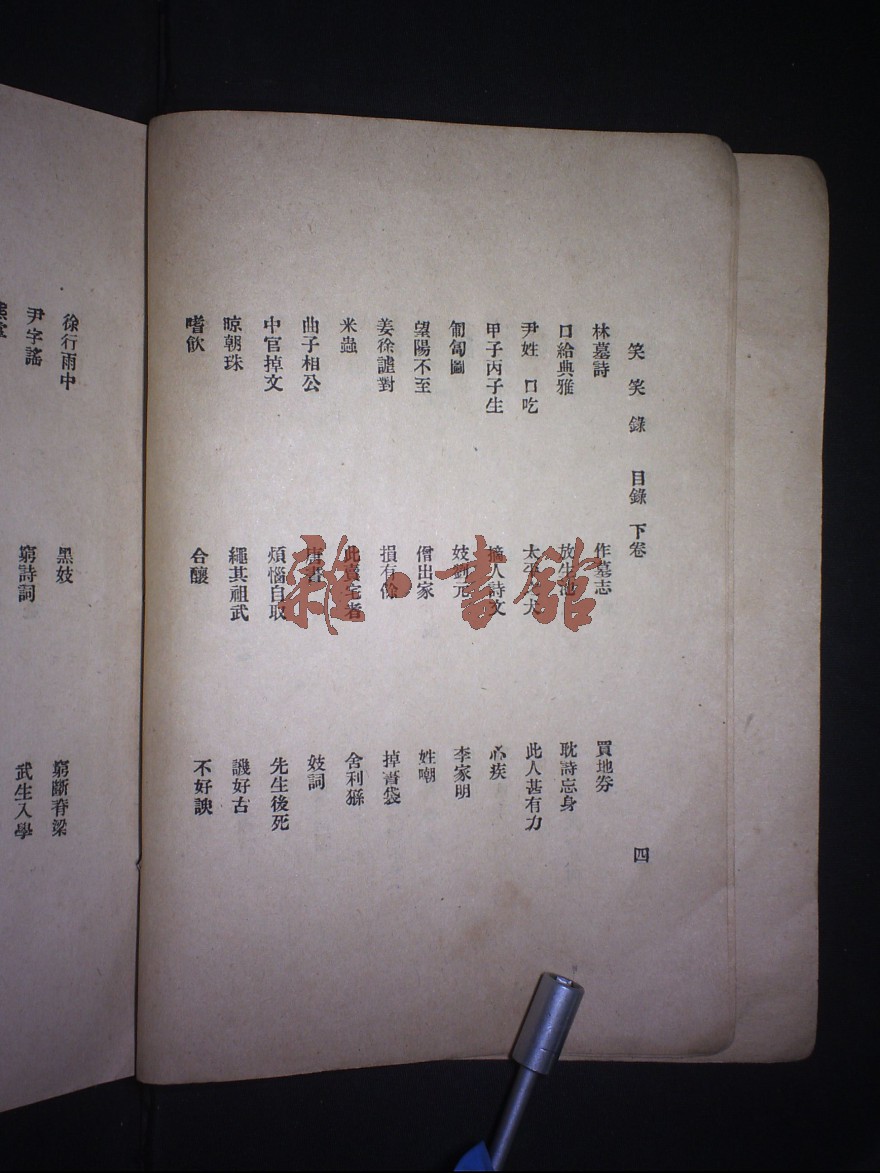 笑笑錄 目錄 下卷 四
林墓詩 作墓志 買地券
口給典雅 放生池 耽詩忘身
尹姓 口吃 太平犬 此人甚有力
甲子丙子生 摘人詩文 心疾
匍匐圖 妓劉元 李家明
望陽不至 僧出家 姓嘲
姜徐謔對 損有餘 掉書袋
米蟲 此袁宅者 舍利猻
曲子相公 唐書 妓詞
中官掉文 煩惱自取 先生後死
晾朝珠 繩其祖武 譏好古
嗜飲 合釀 不好諛
徐行雨中 黑妓 窮斷脊梁
尹字謠 窮詩詞 武生入學
雜·書館